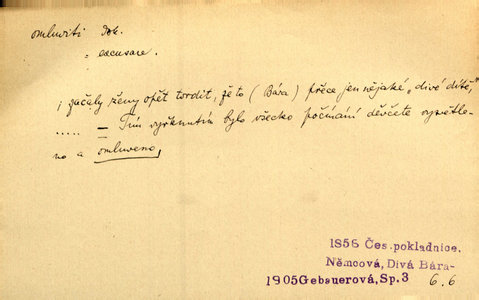 omluviti dok.
= excusare.
i začaly ženy opět tvrdit, že to (Bára) přece jen nějaké „divé dítě,"
..... – Tím vyřknutím bylo všecko počínání děvčete vysvětle-
no a omluveno,
1856 Čes. pokladnice.
Němcová, Divá Bára-
1905 Gebauerová, Sp. 3 6.6